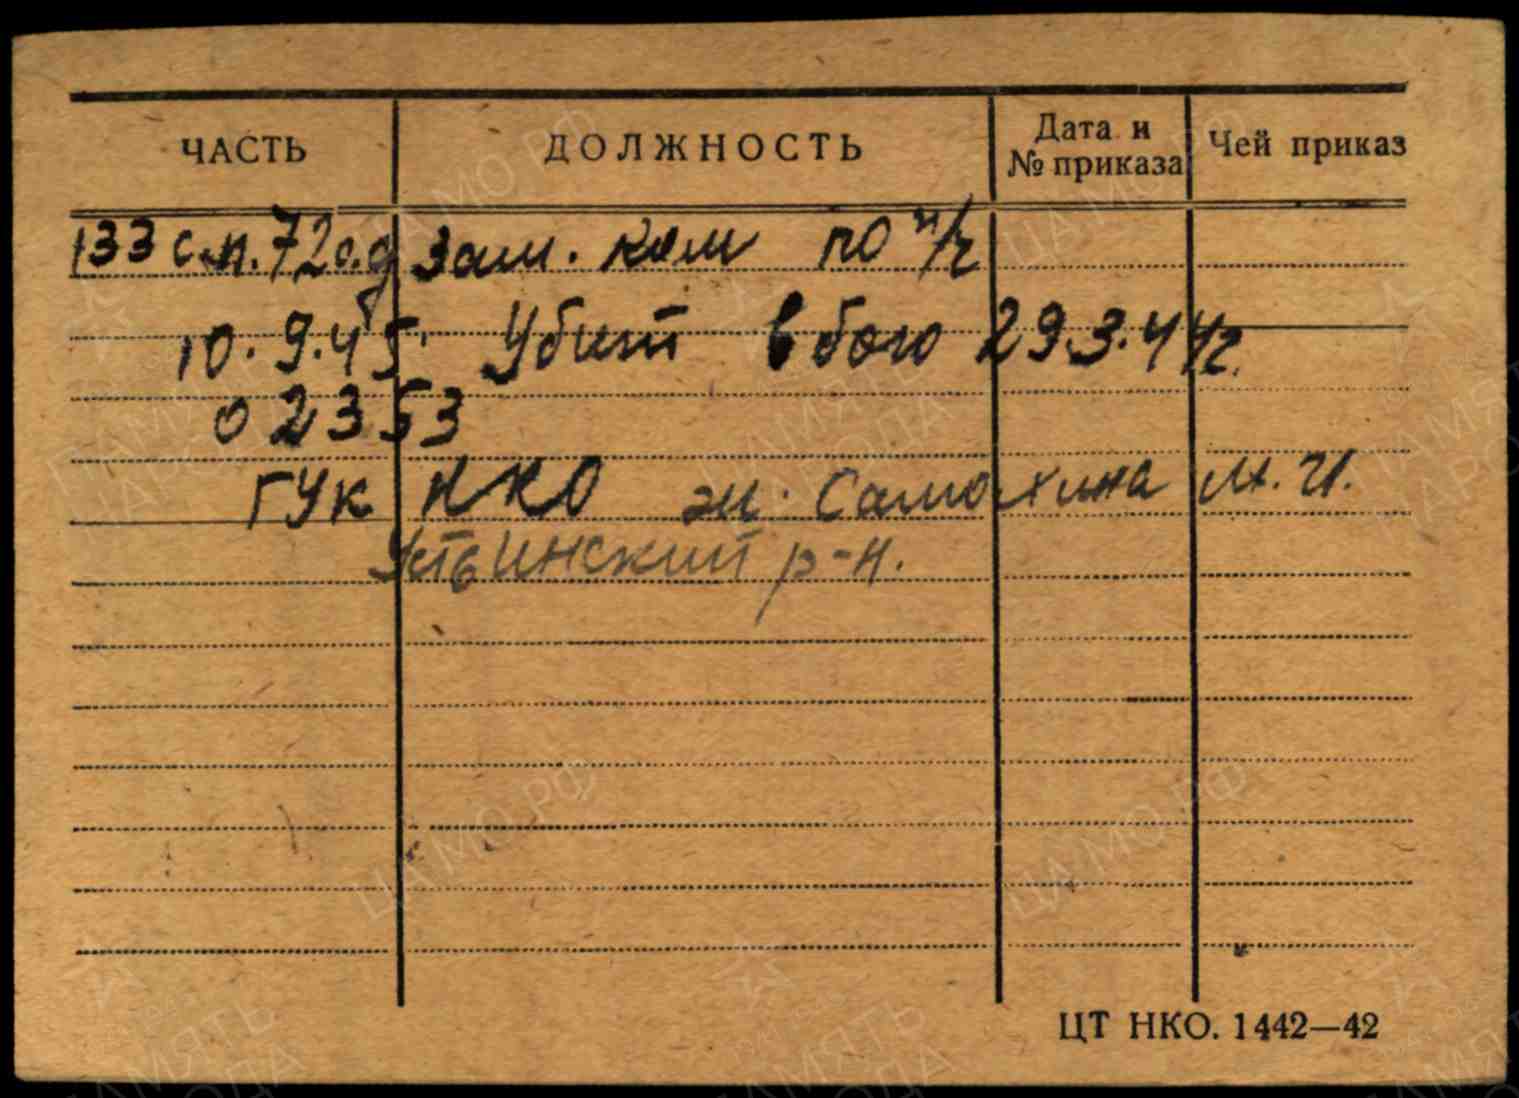 ЧАСТЬ ДОЛЖНОСТЬ Дата и № приказа Чей приказ
133 с.п. 72 с.д зам. ком по п/ч
10.9.45. Убит в бою 29.3.44г.
02353
ГУК НКО ж. Самохина М.И.
Устьинский р-н.
ЦТ НКО. 1442—42